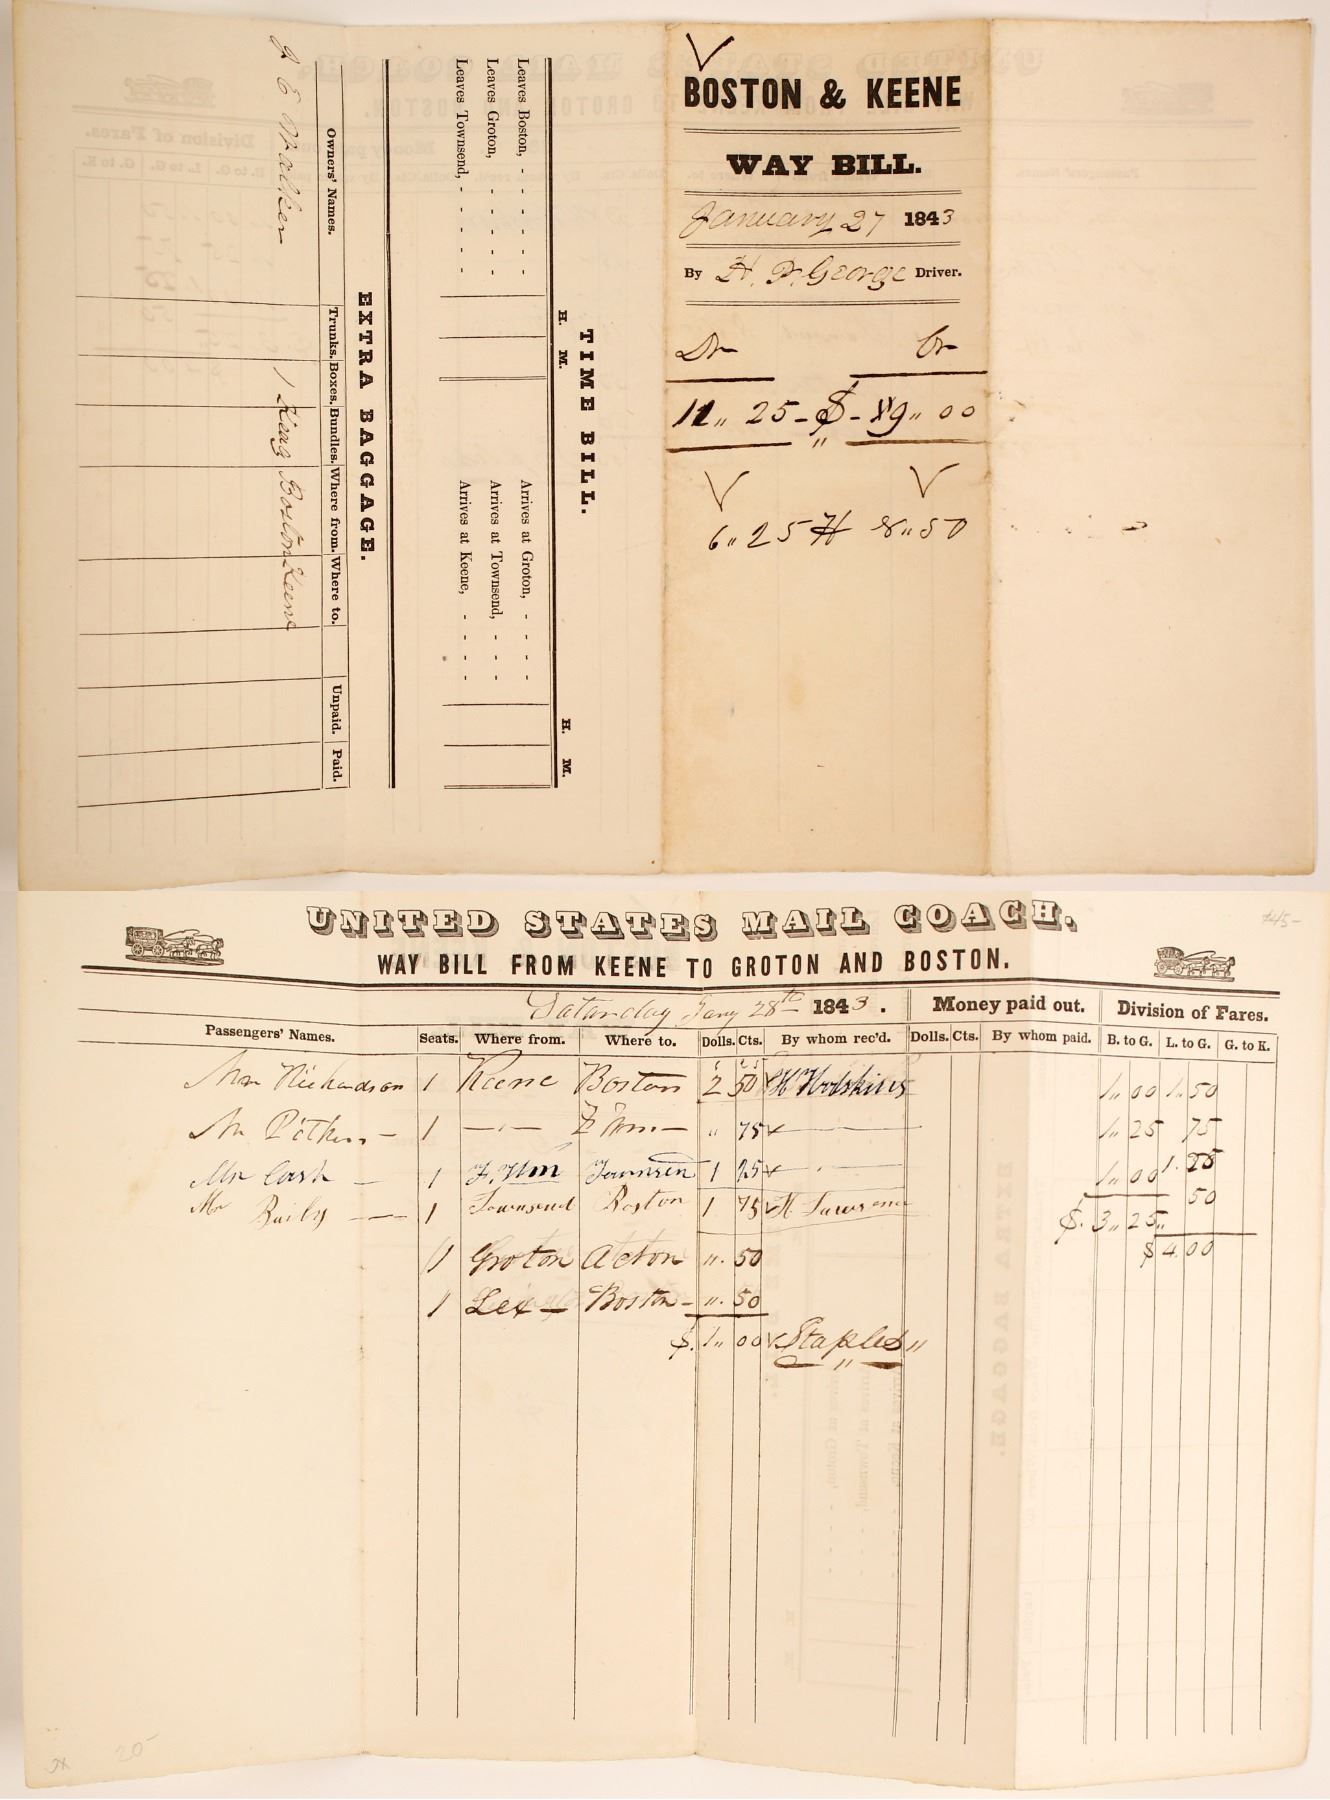 BOSTON & KEENE
WAY BILL.
January 27 1843
By H. F. George Driver.
Dr Cr
11,, 25 - $ - 19,, 00
6,, 25 H 8,, 50
TIME BILL.
H. M. H. M.
Leaves Boston, - - - - Arrives at Groton, - - - -
Leaves Groton, - - - - Arrives at Townsend, - - -
Leaves Townsend, - - - - Arrives at Keene, - - - -
EXTRA BAGGAGE.
Owners' Names. Trunks. Boxes. Bundles. Where from. Where to. Unpaid. Paid.
Walker 1 Keag Boston Keene
UNITED STATES MAIL COACH.
$45-
WAY BILL FROM KEENE TO GROTON AND BOSTON.
Saturday Jany 28th 1843. Money paid out. Division of Fares.
Passengers' Names. Seats. Where from. Where to. Dolls. Cts. By whom rec'd. Dolls. Cts. By whom paid. B. to G. L. to G. G. to K.
Mr Richardson 1 Keene Boston 2 50 H Hodskins 1,, 00 1,, 50
Mr Pitkin - 1 - - - F. Wm - ,, 75 1,, 25 75
Mr Cash - 1 F. Wm Townsen 1 25 1,, 00 1. 25
Mr Baily - 1 Townsend Boston 1 75 H Lawrence 50
$. 3,, 25,,
1 Groton Acton ,,. 50 $ 4.00
1 Lex - Boston - ,,. 50
$. 1,, 00 Staples ,,
20